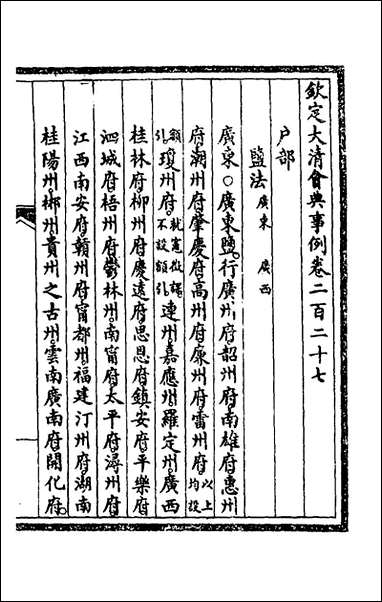 欽定大清會典事例卷二百二十七
戶部
鹽法廣東 廣西
廣東○廣東鹽行廣州府韶州府南雄府惠州
府潮州府肇慶府高州府廉州府雷州府以上均設
額引瓊州府就竈徵課不設額引連州嘉應州羅定州廣西
桂林府柳州府慶遠府思恩府鎮安府平樂府
泗城府梧州府鬱林州南甯府太平府潯州府
江西南安府贛州府甯都州福建汀州府湖南
桂陽州郴州貴州之古州雲南廣南府開化府